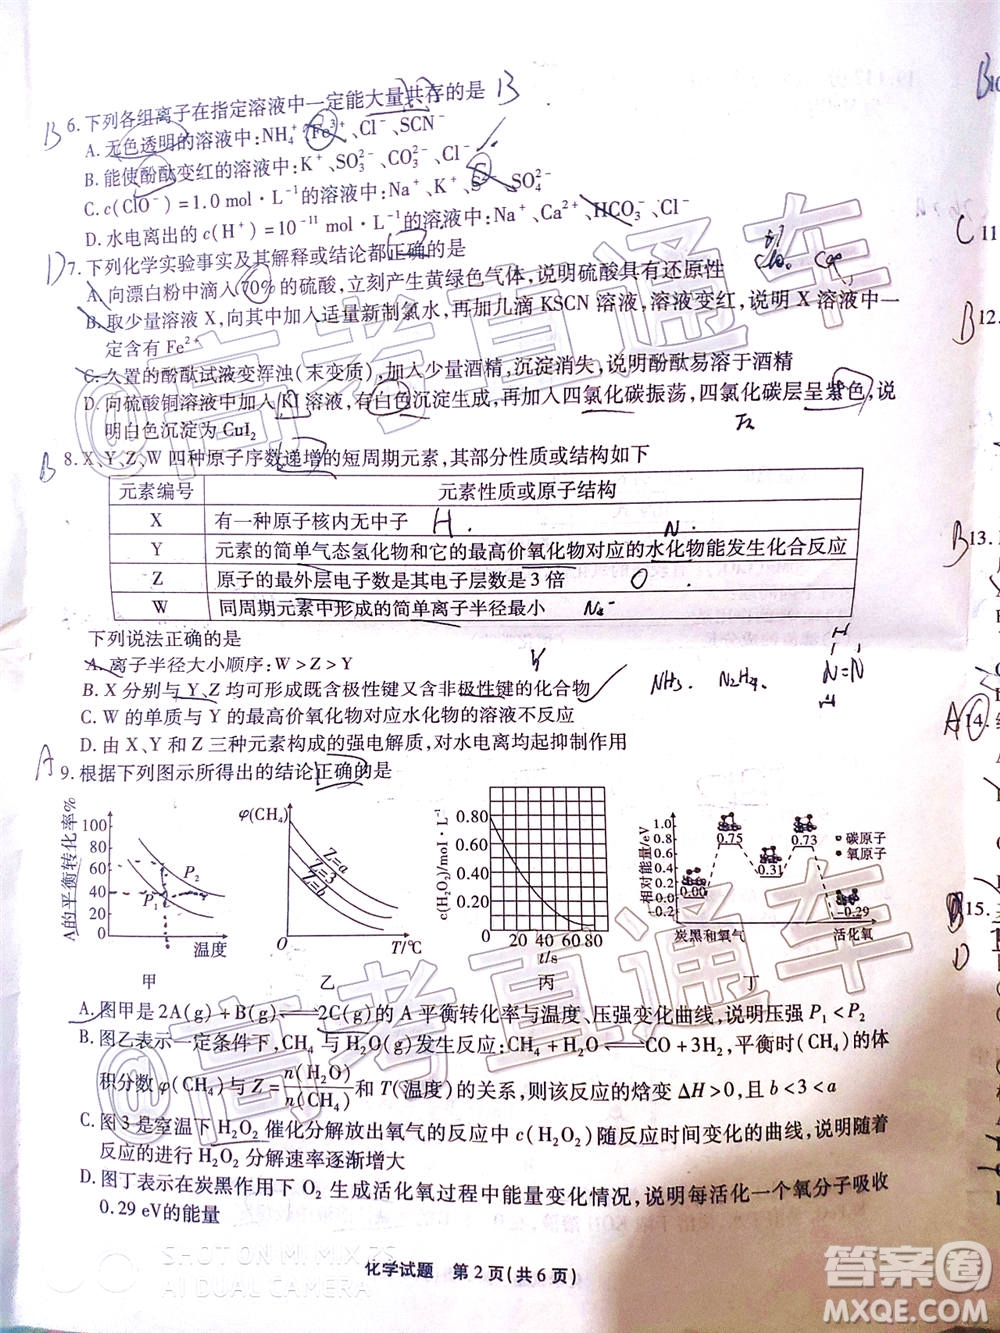 B 6.下列各组离子在指定溶液中一定能大量共存的是 B
A.无色透明的溶液中:NH₄⁺、Fe³⁺、Cl⁻、SCN⁻
B.能使酚酞变红的溶液中:K⁺、SO₃²⁻、CO₃²⁻、Cl⁻
C.c(ClO⁻)=1.0 mol·L⁻¹的溶液中:Na⁺、K⁺、S²⁻、SO₄²⁻
D.水电离出的 c(H⁺)=10⁻¹¹ mol·L⁻¹的溶液中:Na⁺、Ca²⁺、HCO₃⁻、Cl⁻
D 7.下列化学实验事实及其解释或结论都正确的是
A.向漂白粉中滴入70%的硫酸,立刻产生黄绿色气体,说明硫酸具有还原性
B.取少量溶液 X,向其中加入适量新制氯水,再加几滴 KSCN 溶液,溶液变红,说明 X 溶液中一
定含有 Fe²⁺
C.久置的酚酞试液变浑浊(末变质),加少量酒精,沉淀消失,说明酚酞易溶于酒精
D.向硫酸铜溶液中加入 KI 溶液,有白色沉淀生成,再加入四氯化碳振荡,四氯化碳层呈紫色,说
明白色沉淀为 CuI₂
I₂
B 8.X、Y、Z、W 四种原子序数递增的短周期元素,其部分性质或结构如下
元素编号 元素性质或原子结构
X 有一种原子核内无中子 H N
Y 元素的简单气态氢化物和它的最高价氧化物对应的水化物能发生化合反应
Z 原子的最外层电子数是其电子层数是 3 倍 O
W 同周期元素中形成的简单离子半径最小
下列说法正确的是
A.离子半径大小顺序:W＞Z＞Y
B.X 分别与 Y、Z 均可形成既含极性键又含非极性键的化合物
NH₃ N₂H₄ N=N
H
H
C.W 的单质与 Y 的最高价氧化物对应水化物的溶液不反应
D.由 X、Y 和 Z 三种元素构成的强电解质,对水电离均起抑制作用
A 9.根据下列图示所得出的结论正确的是
A的平衡转化率% 100 80 60 40 20 0 P₁ P₂ 温度 甲
φ(CH₄) Z=a Z=3 Z=b O T/℃ 乙
c(H₂O₂)/mol·L⁻¹ 0.80 0.60 0.40 0.20 0 20 40 60 80 t/s 丙
相对能量/eV 1.0 0.8 0.6 0.4 0.2 0.0 -0.2 0.00 0.75 0.31 0.73 -0.29 碳原子 氧原子 炭黑和氧气 活化氧 丁
A.图甲是 2A(g)+B(g)⇌2C(g)的 A 平衡转化率与温度、压强变化曲线,说明压强 P₁＜P₂
B.图乙表示一定条件下,CH₄ 与 H₂O(g)发生反应:CH₄+H₂O⇌CO+3H₂,平衡时(CH₄)的体
积分数 φ(CH₄)与 Z=n(H₂O)/n(CH₄)和 T(温度)的关系,则该反应的焓变 ΔH＞0,且 b＜3＜a
C.图 3 是室温下 H₂O₂ 催化分解放出氧气的反应中 c(H₂O₂)随反应时间变化的曲线,说明随着
反应的进行 H₂O₂ 分解速率逐渐增大
D.图丁表示在炭黑作用下 O₂ 生成活化氧过程中能量变化情况,说明每活化一个氧分子吸收
0.29 eV的能量
化学试题 第 2 页(共 6 页)
B10
C 11
B 12.
B 13.
A 14.
15.
D
@高考直通车
@高考直通车
SHOT ON MI MIX 2S
AI DUAL CAMERA
答案圈
MXQE.COM